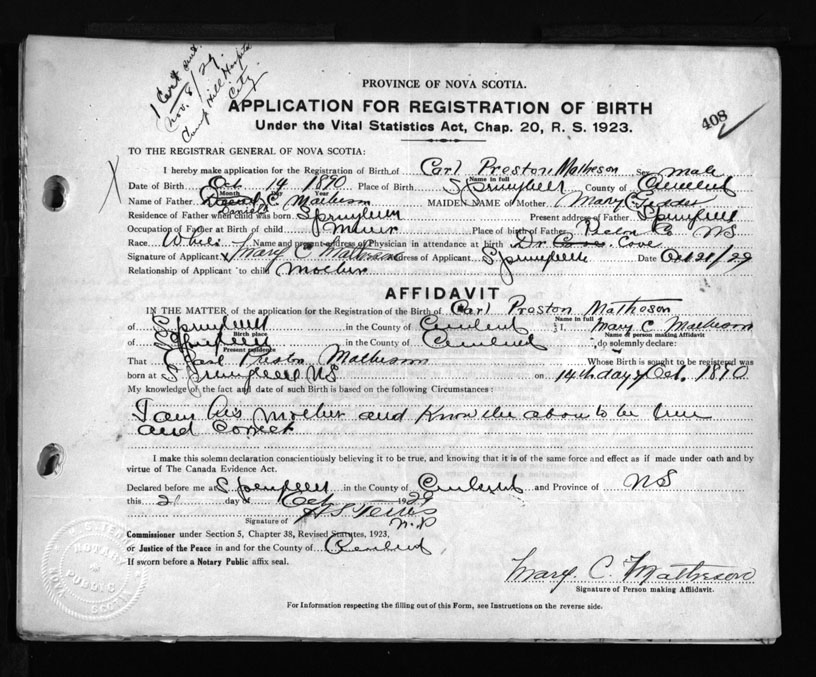 1 Cert sent.
Nov. 8/29.
Camp Hill Hospital
City.
408
PROVINCE OF NOVA SCOTIA.
APPLICATION FOR REGISTRATION OF BIRTH
Under the Vital Statistics Act, Chap. 20, R. S. 1923.
TO THE REGISTRAR GENERAL OF NOVA SCOTIA:
I hereby make application for the Registration of Birth of Carl Preston Matheson Sex male
Name in full
Date of Birth Oct 14 1890 Place of Birth Springhill County of Cumberland
Month Year
Name of Father Daniel C. Matheson MAIDEN NAME of Mother Mary
Residence of Father when child was born Springhill Present address of Father Springhill
Occupation of Father at Birth of child Miner Place of birth of Father Pictou Co. NS
Race White Name and present address of Physician in attendance at birth Dr. Cove
Signature of Applicant Mary C Matheson Address of Applicant Springhill Date Oct 21/29
Relationship of Applicant to child Mother
AFFIDAVIT
IN THE MATTER of the application for the Registration of the Birth of Carl Preston Matheson
Name in full
of Springhill in the County of Cumberland I, Mary C. Matheson
Birth place
Name of person making Affidavit
of Springhill in the County of Cumberland do solemnly declare:
Present residence
That Carl Preston Matheson Whose Birth is sought to be registered was
born at Springhill NS on 14th day of Oct. 1890
My knowledge of the fact and date of such Birth is based on the following Circumstances:
I am his Mother and Know the above to be true
and correct
I make this solemn declaration conscientiously believing it to be true, and knowing that it is of the same force and effect as if made under oath and by
virtue of The Canada Evidence Act.
Declared before me at Springhill in the County of Cumberland and Province of NS
this 21 day of Oct 1929
Signature of
Commissioner under Section 5, Chapter 38, Revised Statutes, 1923,
or Justice of the Peace in and for the County of Cumberland
If sworn before a Notary Public affix seal.
NOTARY PUBLIC
NOVA SCOTIA
Mary C. Matheson
Signature of Person making Affidavit.
For Information respecting the filling out of this Form, see Instructions on the reverse side.